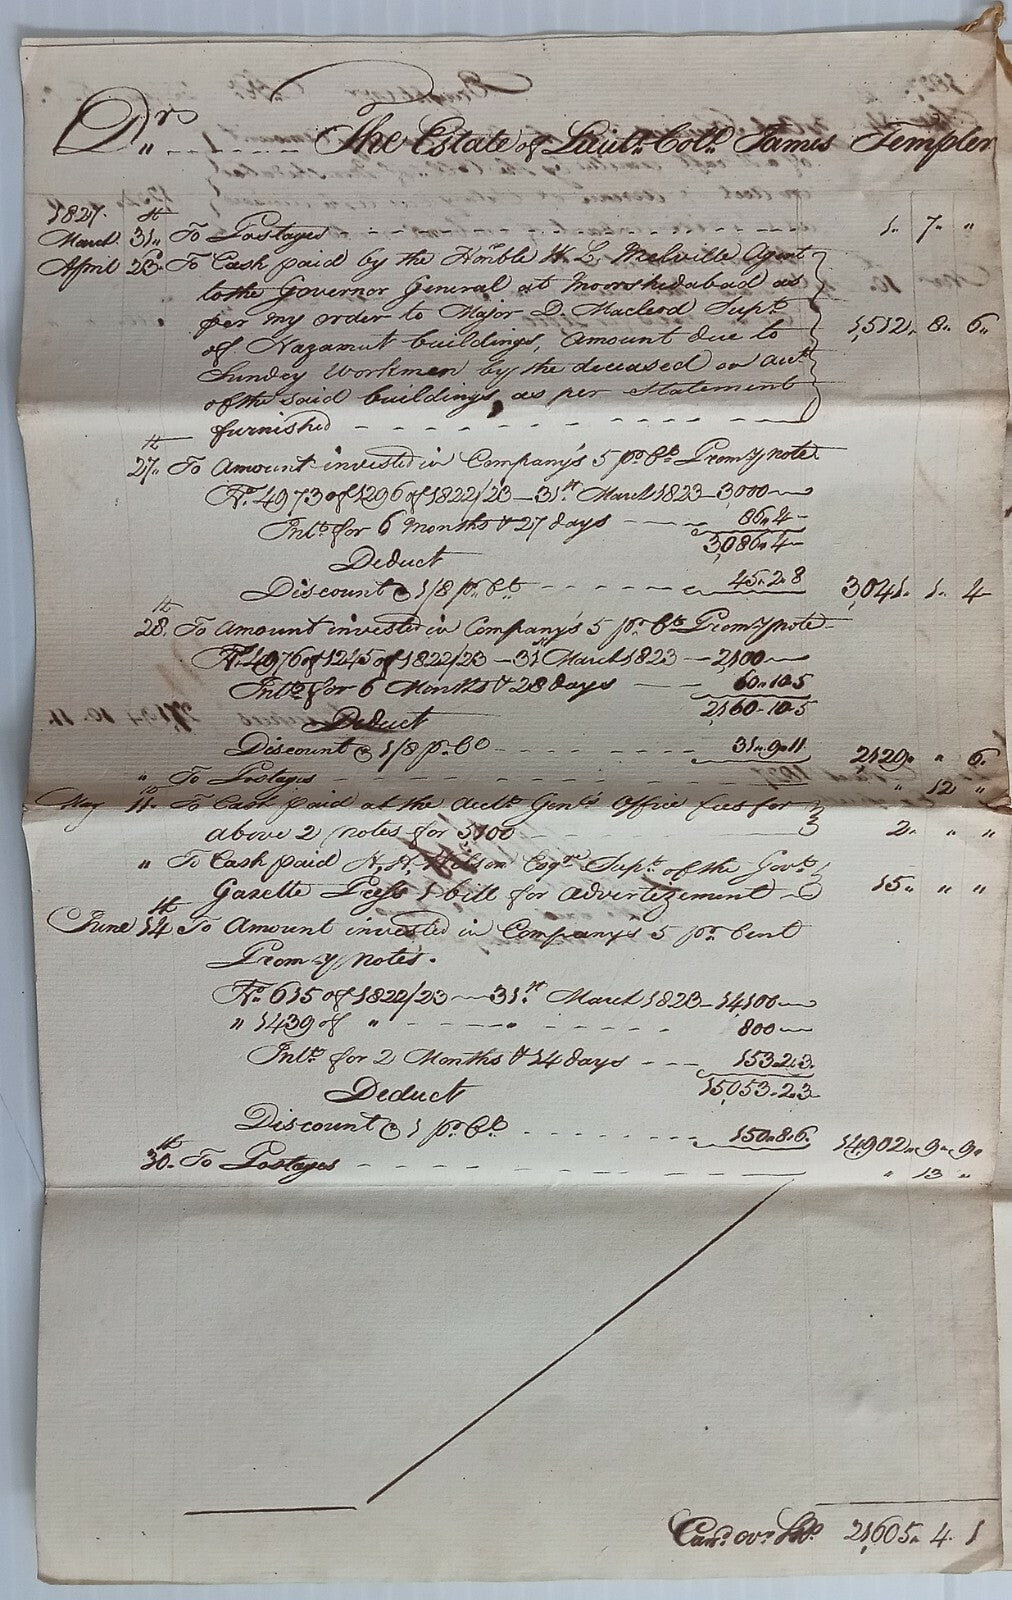 Drs „ The Estate of Lieutt. Coll. James Templer
1827.
March 31st„ To Postages 1„ 7„ „
April 23d. To Cash paid by the Honble W. L. Melville Agent
to the Governor General at Moorshedabad as
per my order to Major D. Macleod Supt. 1,512„ 8„ 6„
of Nazamut buildings, amount due to
Sundry Workmen by the deceased on acct.
of the said buildings as per Statement
furnished
27th„ To Amount invested in Company's 5 pr. Ct. Promy note
No. 4973 of 1296 of 1822/23 — 31st March 1823 — 3,000 —
Intt. for 6 Months & 27 days 86„ 4 —
3,086„ 4 —
Deduct
Discount @ 1/8 pr. Ct. 45„ 2„ 8 3,041„ 1„ 4
28th. To Amount invested in Company's 5 pr. Ct. Promy note
No. 4976 of 1245 of 1822/23 — 31st March 1823 — 2,100 —
Intt. for 6 Months & 28 days 60„ 10„ 5
2,160„ 10„ 5
Deduct
Discount @ 1/8 pr. Ct 31„ 9„ 11 2,129„ „ 6„
„ To Postages „ 12 „
May 11th. To Cash paid at the Acctt. Genl's Office fees for
above 2 notes for 5,100 2„ „ „
„ To Cash paid H. H. Wilson Esqr. Supt. of the Govt.
Gazette Press 1 bill for advertizement 15„ „ „
June 14th To Amount invested in Company's 5 pr. Cent
Promy notes.
No. 615 of 1822/23 — 31st March 1823 — 14,100 —
„ 1439 of „ — „ 800 —
Intt. for 2 Months & 14 days 153„ 2„ 3
15,053„ 2„ 3
Deduct
Discount @ 1 pr. Ct. 150„ 8„ 6 14,902„ 9„ 9„
30th. To Postages „ 13 „
Card. over SRs. 21,605„ 4„ 1